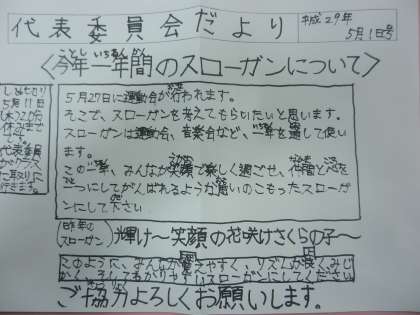 代表委員会だより
平成29年
5月1日号
〈今年一年間のスローガンについて〉
ことし いちねんかん
しめきり
5月11日
(木)2の
休みまで
代表委員
がクラス
に取りに
行きます。
5月27日に運動会が行われます。
そこで、スローガンを考えてもらいたいと思います。
スローガンは運動会、音楽会など、一年を通して使い
ます。
この一年、みんなが笑顔で楽しく過ごせ、仲間と心を
一つにしてがんばれるような思いのこもったスローガ
ンにして下さい
(昨年の
スローガン)
輝け〜笑顔の花咲けさくらの子〜
このように、みんなが覚えやすく、リズムが良くみじ
かく、そしてわかりやすいスローガンにしてください
ご協力よろしくお願いします。